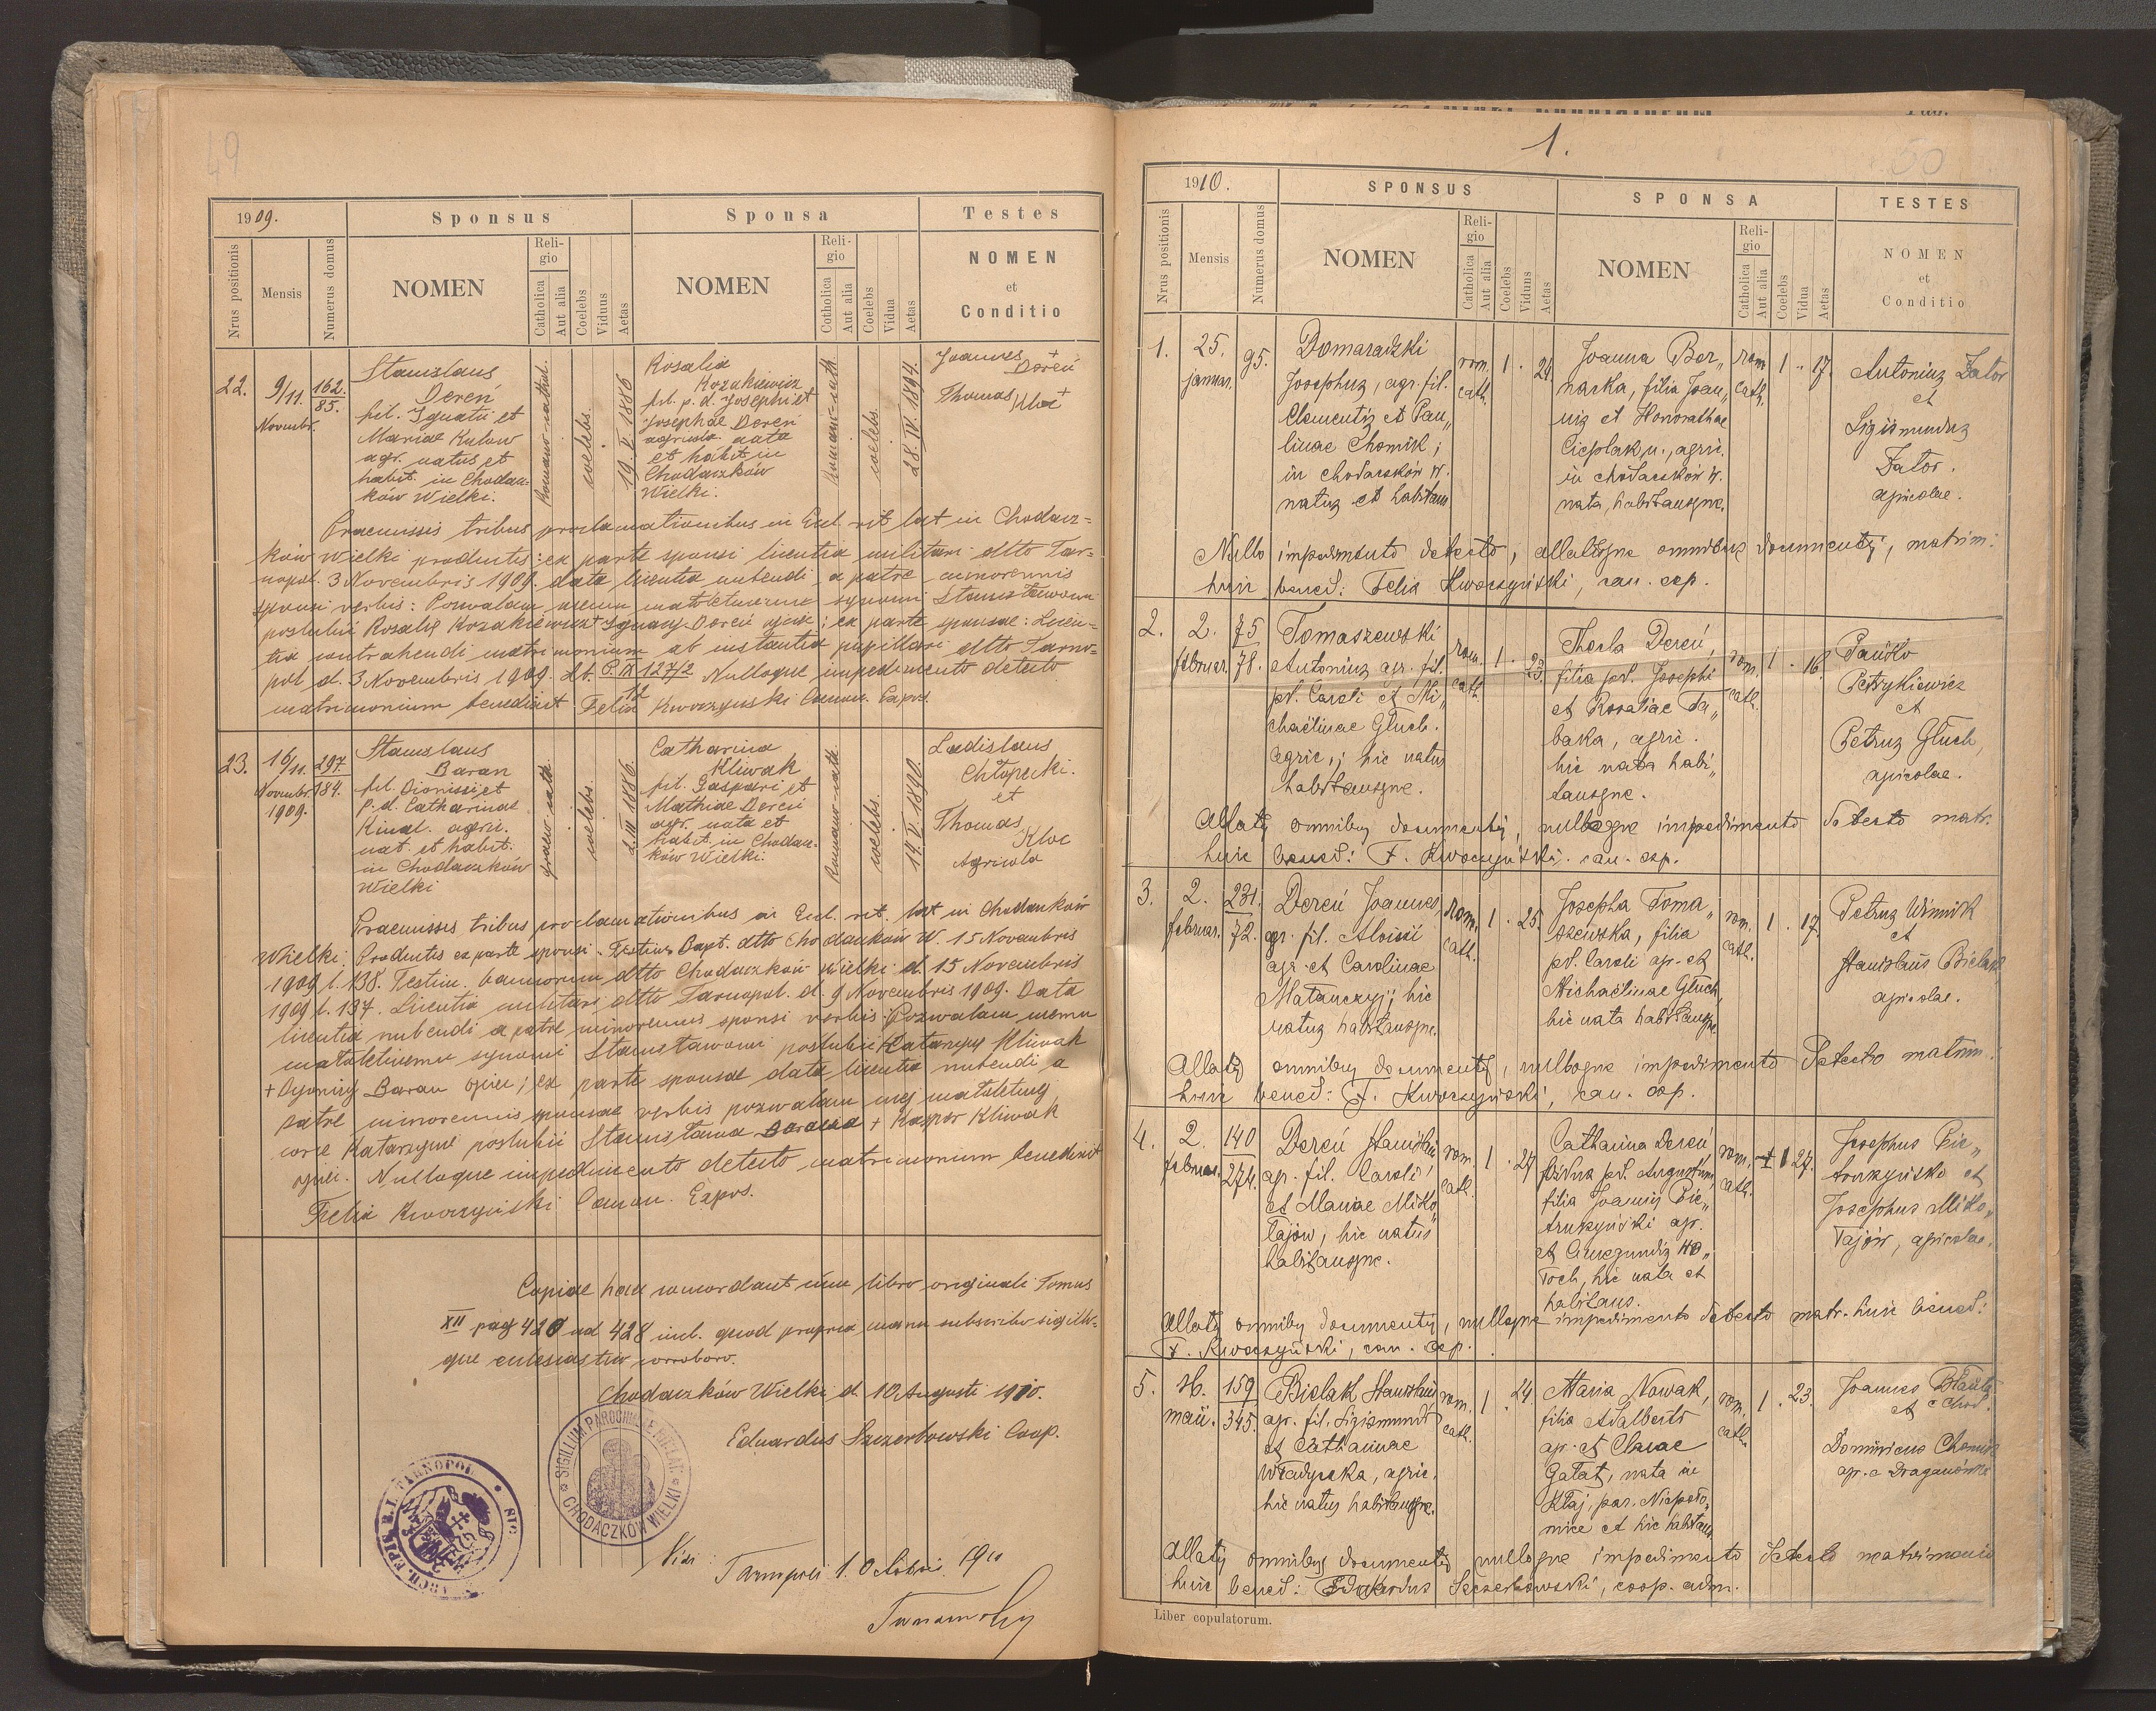 49
1909.
Sponsus
Sponsa
Testes
Nrus positionis
Mensis
Numerus domus
NOMEN
Religio
Catholica
Aut alia
Coelebs
Viduus
Aetas
NOMEN
Religio
Catholica
Aut alia
Coelebs
Vidua
Aetas
NOMEN
et
Conditio
22.
9/11.
Novembr.
162.
85.
Stanislaus
Dereń
fil. Ignatii et
Mariae Kulow
agr. natus et
habit. in Chodacz-
ków Wielki.
Romano-cathol.
coelebs.
19. V. 1886
Rosalia
Kozakiewicz
fil. p. d. Josephi et
Josephae Dereń
agricola. nata
et habit. in
Chodaczków
Wielki.
Romano-cath
coelebs.
28. IV. 1894.
Joannes +
Dereń
Thomas Kloc +
Praemissis tribus proclamationibus in Eccl. rit. lat in Chodacz=
ków Wielki productis: ex parte sponsi licentia militari dtto Tar=
nopol. 3 Novembris 1909. data licentia nubendi a patre minorennis
sponsi verbis: Pozwalam memu małoletniemu synowi Stanisławowi
poślubić Rosalię Kozakiewicz + Ignacy Dereń ojciec; ex parte sponsae: Licen=
tia contrahendi matrimonium ab instantia pupillari dtto Tarno=
pol d. 3 Novembris 1909. Lb. P. IX 127/2
12 Nulloque impedimento detecto
matrimonium benedixit Felix Kworzyński Canon. Expos.
23.
16/11.
Novembr.
1909.
297
184.
Stanislaus
Baran
fil. Dionisii et
p. d. Catharinae
Kinal. agric.
nat. et habit.
in Chodaczków
Wielki
graeco-cath.
coelebs.
2. III 1886.
Catharina
Kliwak
fil. Gaspari et
Mathiae Dereń
agr. nata et
habit. in Chodacz-
ków Wielki.
Romano-cath.
coelebs.
14. V. 1890.
Ladislaus
Chłopecki.
et
Thomas
Kloc
Agricola
Praemissis tribus proclamationibus in Eccl. rit. lat in Chodaczków
Wielki. Productis ex parte sponsi. Testim. Bapt. dtto Chodaczków W. 15 Novembris
1909 l. 138. Testim. bannorum dtto Chodaczków Wielki d. 15 Novembris
1909 l. 137. Licentia militari dtto Tarnopol. d. 9 Novembris 1909. Data
licentia nubendi a patre minorennis sponsi verbis: Pozwalam memu
małoletniemu synowi Stanisławowi poślubić Katarzynę Kliwak
+ Dyonizy Baran ojciec; ex parte sponsae data licentia nubendi a
patre minorennis sponsae verbis pozwalam mej małoletniej
córce Katarzynie poślubić Stanisława Barana + Kasper Kliwak
ojciec. Nulloque impedimento detecto matrimonium benedixit
Felix Kworzyński Canon. Expos.
Copiae hae concordant cum libro originali Tomus
XII pag 420 ad 428 incl. quod propria manu subscribo sigillo=
que eclesiastico corroboro.
Chodaczków Wielki d. 10 Augusti 1910.
Eduardus Szczerbowski Coop.
SIGILLUM PAROCHIALE
CHODACZKÓW WIELKI
TARNOPOL
Vidi:
Tarnopoli 1. Octobri 1910
50
1.
1910.
SPONSUS
SPONSA
TESTES
Nrus positionis
Mensis
Numerus domus
NOMEN
Religio
Catholica
Aut alia
Coelebs
Viduus
Aetas
NOMEN
Religio
Catholica
Aut alia
Coelebs
Vidua
Aetas
NOMEN
et
Conditio
1.
25.
januar.
95.
Domaradzki
Josephus, agr. fil.
Clementis et Pau„
linae Chomik;
in Chodaczków W.
natus et habitans
rom.
cath.
1
24
Joanna Bor„
narska, filia Joan„
nis et Honorathae
Cieplak u., agric.
in Chodaczków W.
nata, habitansque.
rom
cath.
1
17.
Antonius Zator
et
Sigismundus
Zator.
agricolae.
Nullo impedimento detecto, allatisque omnibus documentis, matrim.
huic bened: Felix Kworzyński, can. exp.
2.
2.
februar.
75
78.
Tomaszewski
Antonius agr. fil
pd. Caroli et Mi„
chaëlinae Głuch.
agric.; hic natus
habitansque.
rom.
cath.
1
23.
Thecla Dereń,
filia pd. Josephi
et Rosaliae Ta„
baka, agric.
hic nata habi„
tansque.
rom.
cath.
1
16.
Pańko
Petrykiewicz
et
Petrus Głuch,
agricolae.
Allatis omnibus documentis, nulloque impedimento detecto matr.
huic bened: F. Kworzyński. can. exp.
3.
2.
februar.
231.
72.
Dereń Joannes,
agr. fil. Aloisii
agr. et Carolinae
Matanczyj; hic
natus habitansque.
rom.
cath.
1
25.
Josepha Toma„
szewska, filia
pd. Caroli agr. et
Michaëlinae Głuch,
hic nata habitansque
rom.
cath.
1
17.
Petrus Winnik
et
Stanislaus Bielak
agricolae.
Allatis omnibus documentis, nulloque impedimento detecto matrim.
huic bened: F. Kworzyński, can. exp.
4.
2.
februar.
140
274.
Dereń Stanislaus
agr. fil. Caroli
et Mariae Miko„
łajów, hic natus
habitansque.
rom.
cath.
1
27
Catharina Dereń
vidua pd. Augustini,
filia Joannis Pie„
truszyński agr.
et Cunegundis Wo„
łoch, hic nata et
habitans.
rom.
cath.
1
27.
Josephus Pie„
truszyński et
Josephus Miko„
łajów, agricolae.
Allatis omnibus documentis, nulloque impedimento detecto matr. huic bened:
F. Kworzyński, can. exp.
5.
maii.
159
345.
Bielak Stanislaus,
agr. fil. Sigismundi
et Catharinae
Władycka, agric.
hic natus habitansque.
rom.
cath.
1
24.
Maria Nowak,
filia Adalberti
agr. et Clarae
Gałat, nata in
Kłaj, par. Niepoło„
mice et hic habitans
rom.
cath.
1
23.
Joannes
et c Chod.
Dominicus Chomik
agr. e Draganówka
Allatis omnibus documentis nulloque impedimento detecto matrimonio
huic bened: Eduardus Szczerbowski, coop. adm.
Liber copulatorum.